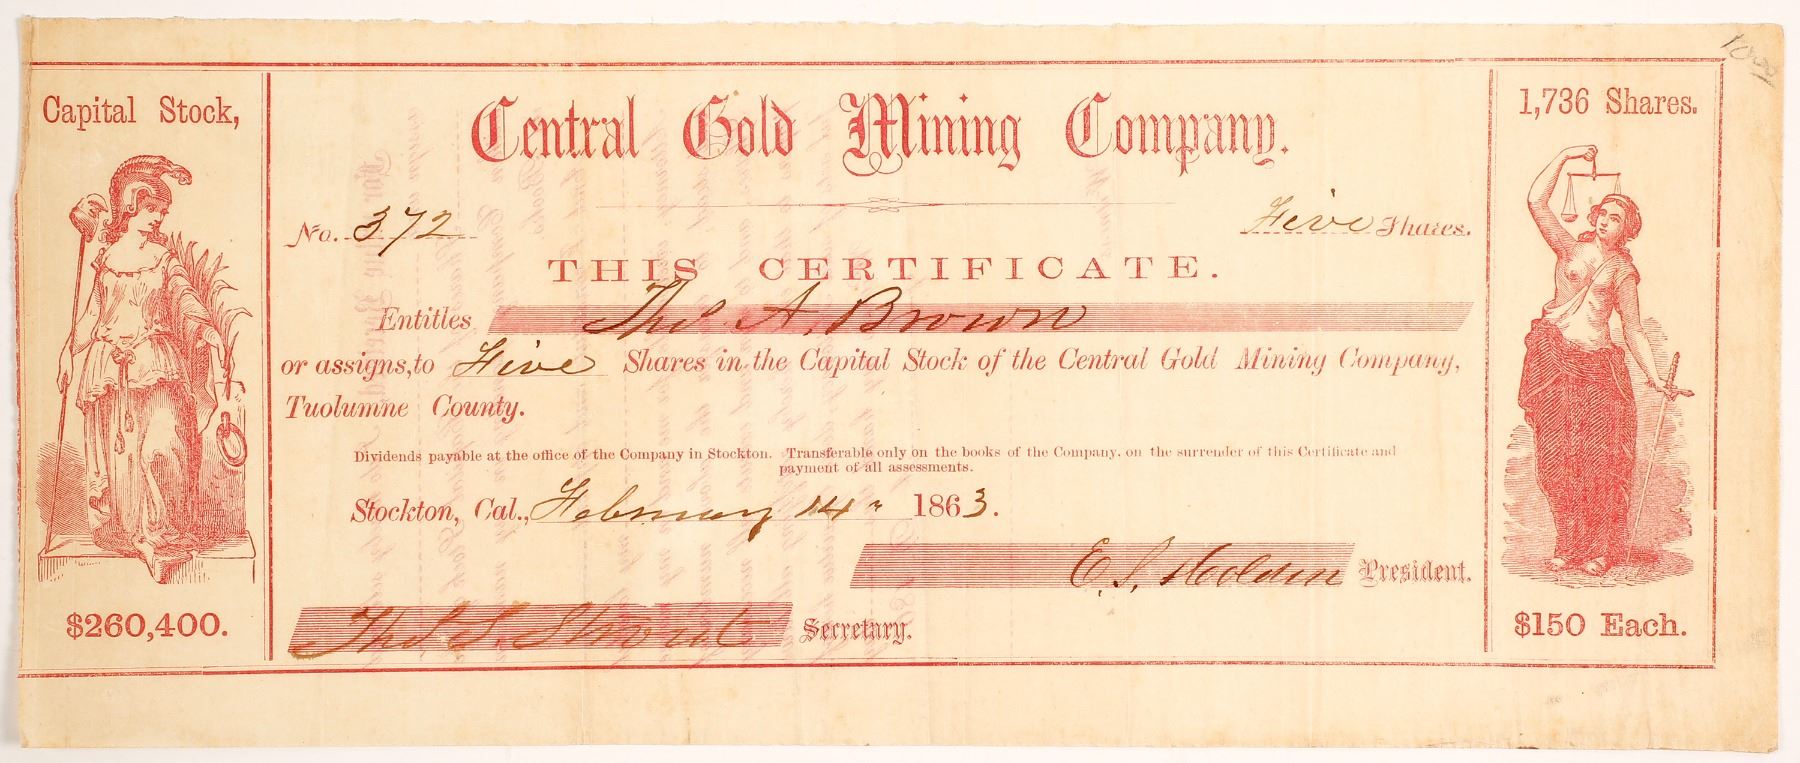 Capital Stock,
$260,400.
Central Gold Mining Company.
No. 372
Five Shares.
THIS CERTIFICATE.
Entitles Thos A. Brown
or assigns, to Five Shares in the Capital Stock of the Central Gold Mining Company,
Tuolumne County.
Dividends payable at the office of the Company in Stockton. Transferable only on the books of the Company, on the surrender of this Certificate and
payment of all assessments.
Stockton, Cal., February 14" 1863.
E. S. Holden President.
Thos S. Secretary.
1,736 Shares.
$150 Each.